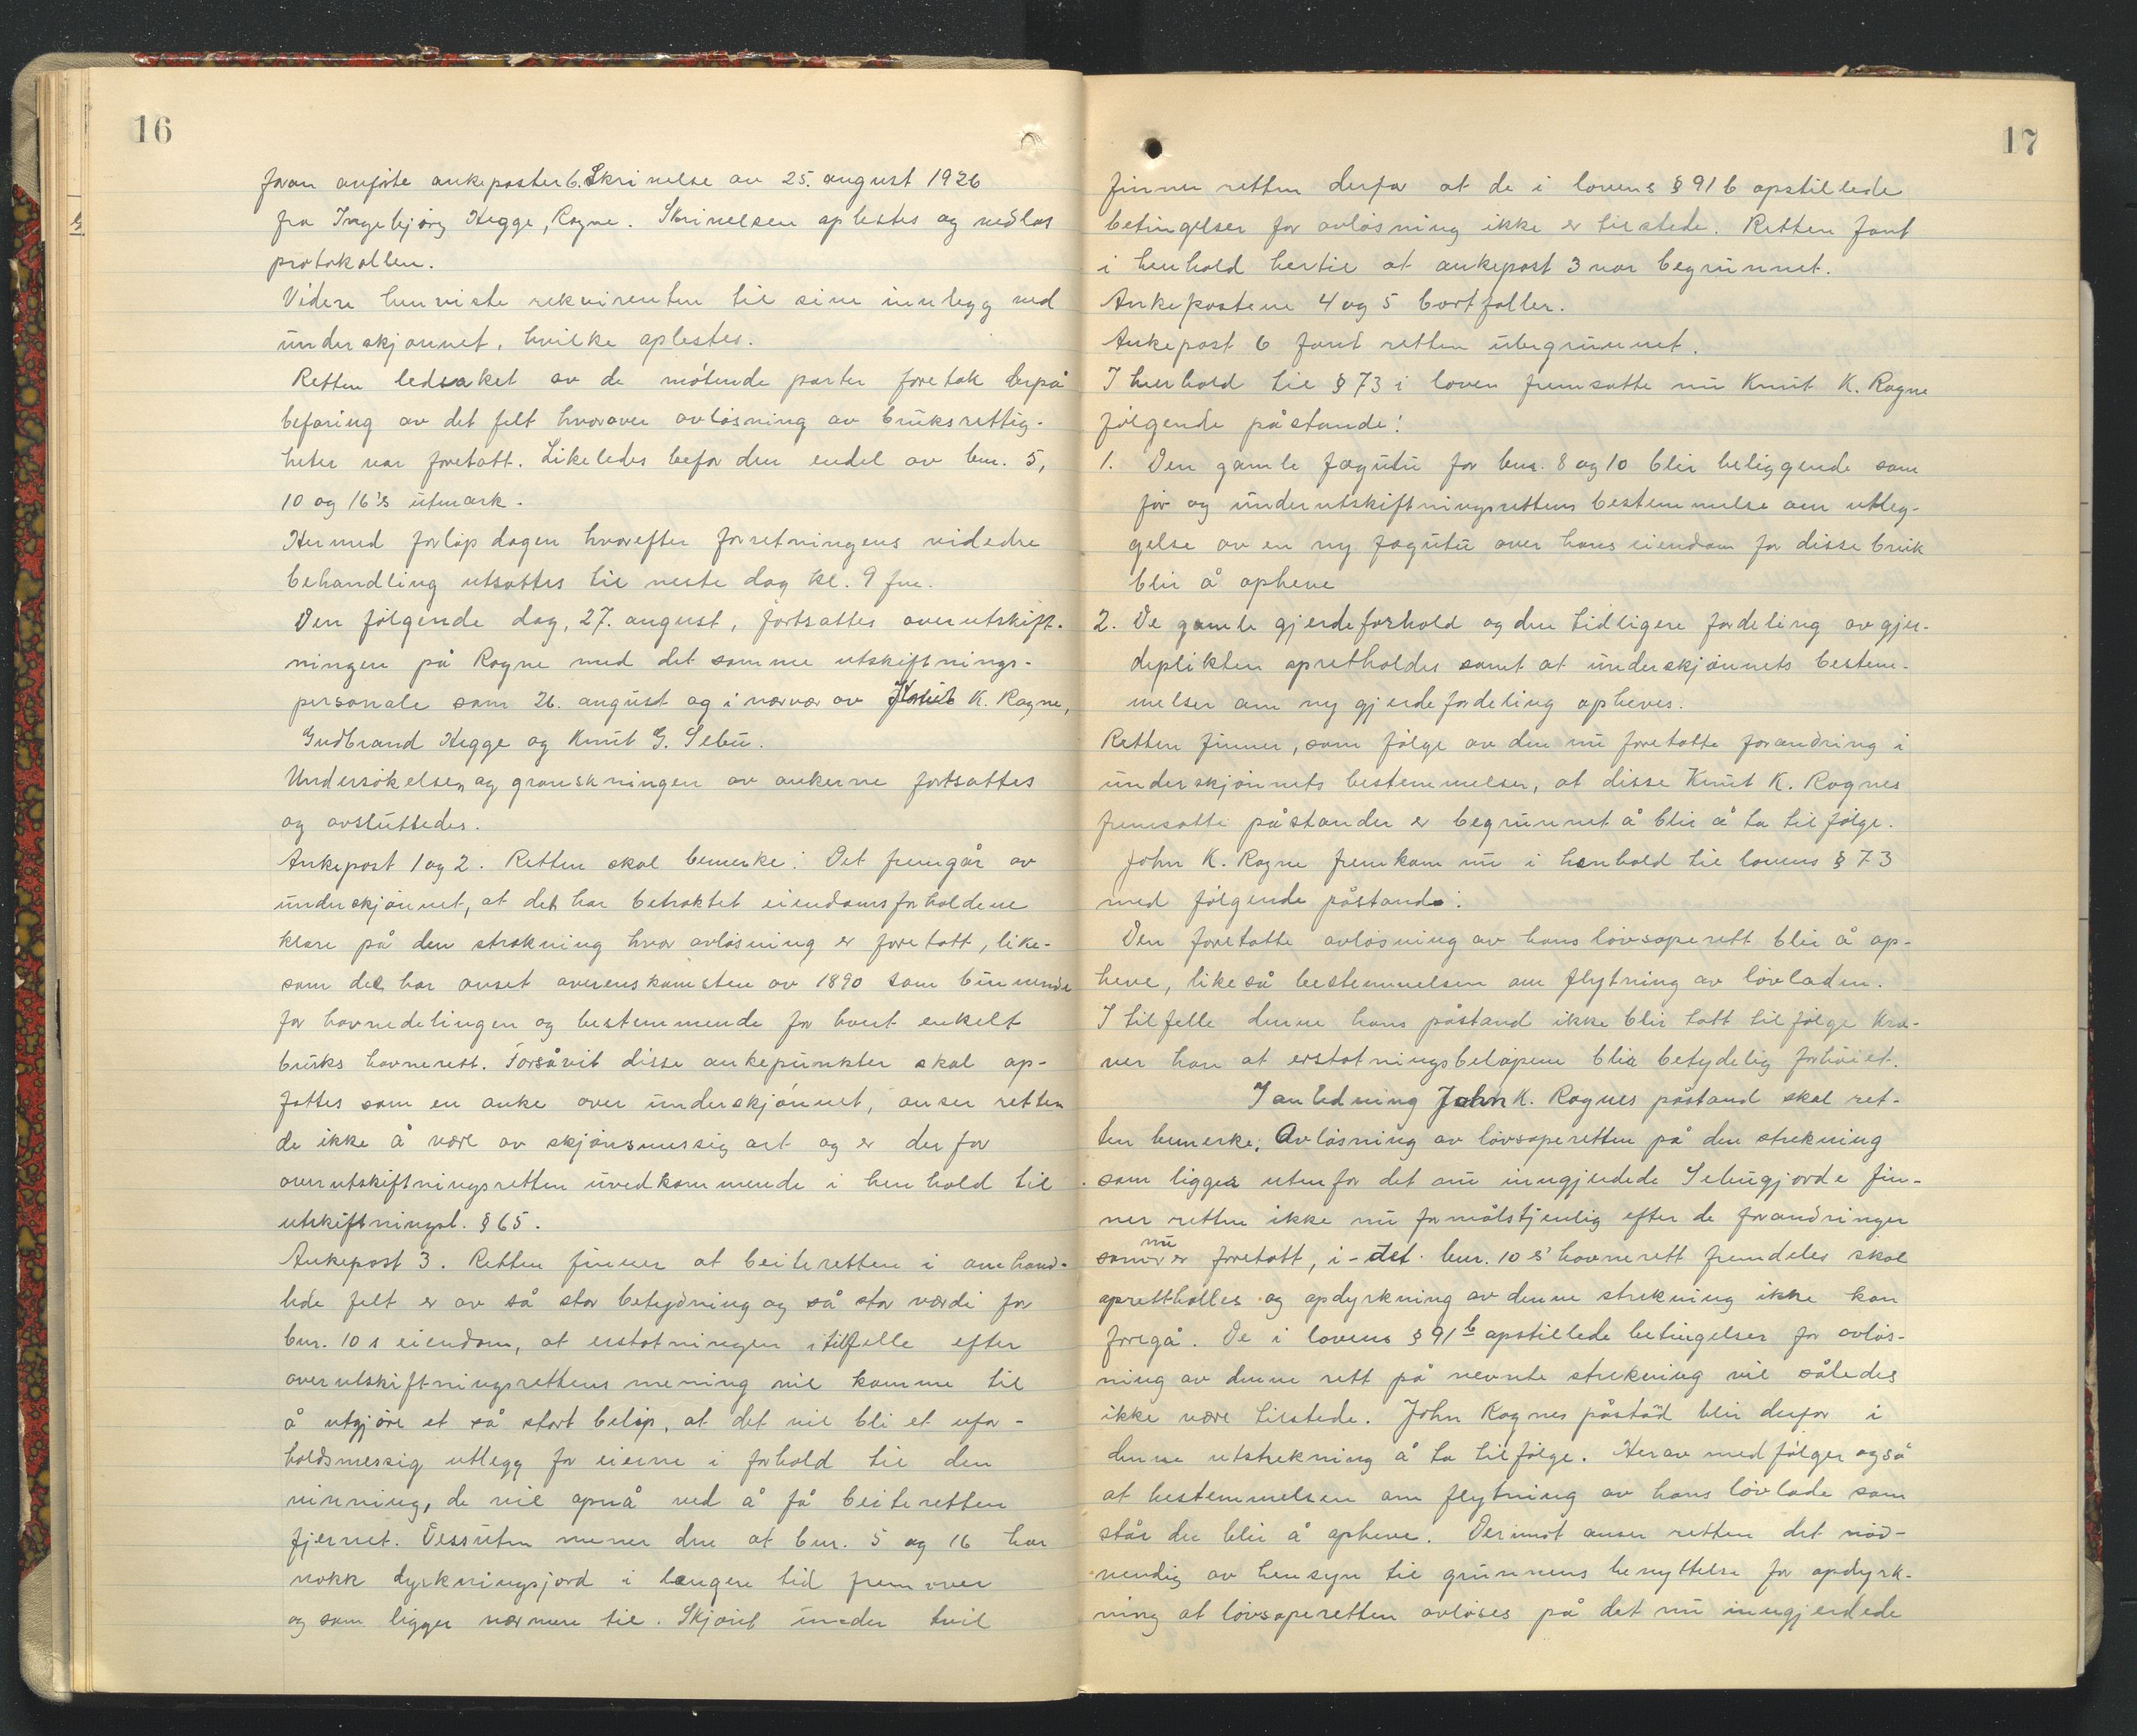 16
foran anførte ankeposter 6. Skrivelse av 25. august 1926
fra Ingebjørg Hegge, Rogne. Skrivelsen oplestes og vedlas
protokollen.
Videre henviste rekvirenten til sine innlegg ved
underskjønnet, hvilke oplestes.
Retten ledsaket av de møtende parter foretok derpå
befaring av det felt hvorover avløsning av bruksrettig-
heter var foretatt. Likeledes befor den endel av bnr. 5,
10 og 16's utmark.
Hermed forløp dagen hvorefter forretningens videdre
behandling utsattes til neste dag kl. 9 fm.
Den følgende dag, 27. august, fortsattes overutskift-
ningen på Rogne med det samme utskiftnings-
personale som 26. august og i nærvær av Knut K. Rogne,
Gudbrand Hegge og Knut G. Sebu.
Undersøkelsen og granskningen av ankerne fortsattes
og avsluttedes.
Ankepost 1 og 2. Retten skal bemerke: Det fremgår av
underskjønnet, at det har betraktet eiendomsforholdene
klare på den strekning hvor avløsning er foretatt, like-
som det har anset overenskomsten av 1890 som binnende
for havnedelingen og bestemmende for hvert enkelt
bruks havnerett. Forsåvit disse ankepunkter skal op-
fattes som en anke over underskjønnet, anser retten
de ikke å være av skjønsmessig art og er derfor
overutskiftningsretten uvedkommende i henhold til
utskiftningsl. § 65.
Ankepost 3. Retten finner at beiteretten i omhand-
lede felt er av så stor betydning og så stor værdi for
bnr. 10 s eiendom, at erstatningen i tilfelle efter
overutskiftningsrettens mening vil komme til
å utgjøre et så stort beløp, at det vil bli et ufor-
holdsmessig utlegg for eierne i forhold til den
vinning, de vil opnå ved å få beiteretten
fjernet. Dessuten mener den at bnr. 5 og 16 har
nokk dyrkningsjord i længere tid fremover
og som ligger nærmere til. Skjønt under tvil
17
finner retten derfor at de i lovens § 91 b opstillede
betingelser for avløsning ikke er tilstede. Retten fant
i henhold hertil at ankepost 3 var begrunnet.
Ankepostene 4 og 5 bortfaller.
Ankepost 6 fant retten ubegrunnet.
I henhold til § 73 i loven fremsatte nu Knut K. Rogne
følgende påstande:
1. Den gamle fægutu for bnr. 8 og 10 blir beliggende som
før og underutskiftningsrettens bestemmelse om utleg-
gelse av en ny fægutu over hans eiendom for disse bruk
blir å opheve
2. De gamle gjerdeforhold og den tidligere fordeling av gjer-
deplikten opretholdes samt at underskjønnets bestem-
melser om ny gjerdefordeling opheves.
Retten finner, som følge av den nu foretatte forandring i
underskjønnets bestemmelser, at disse Knut K. Rognes
fremsatte påstander er begrunnet å blir å ta til følge.
John K. Rogne fremkom nu i henhold til lovens § 73
med følgende påstand:
Den foretatte avløsning av hans løvsoperett blir å op-
heve, likeså bestemmelsen om flytning av løvladen.
I tilfelle denne hans påstand ikke blir tatt til følge kræ-
ver han at erstatningsbeløpene blir betydelig forhøiet.
I anledning John K. Rognes påstand skal ret-
ten bemerke: Avløsning av løvsoperetten på den strekning
som ligger utenfor det nu inngjerdede Sebugjorde fin-
ner retten ikke nu formålstjenlig efter de forandringer
som nu er foretatt, i-det bnr. 10 s' havnerett fremdeles skal
oprettholles og opdyrkning av denne strekning ikke kan
foregå. De i lovens § 91 b opstillede betingelser for avløs-
ning av denne rett på nevnte strekning vil således
ikke være tilstede. John Rognes påstad blir derfor i
denne utstrekning å ta til følge. Herav medfølger også
at bestemmelsen om flytning av hans løvlade som
står der blir å opheve. Derimot anser retten det nød-
vendig av hensyn til grunnens benyttelse for opdyrk-
ning at løvsoperetten avløses på det nu inngjerdede